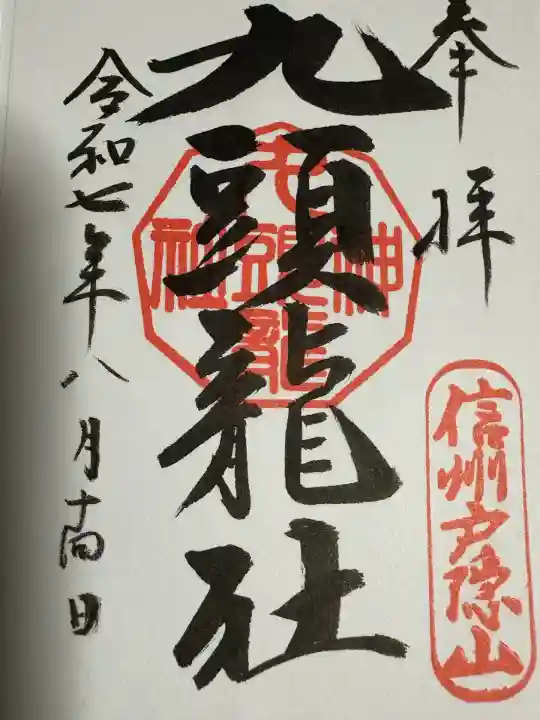 奉拝
信州戸隠山
九頭龍社
九頭龍神社
令和七年八月十四日